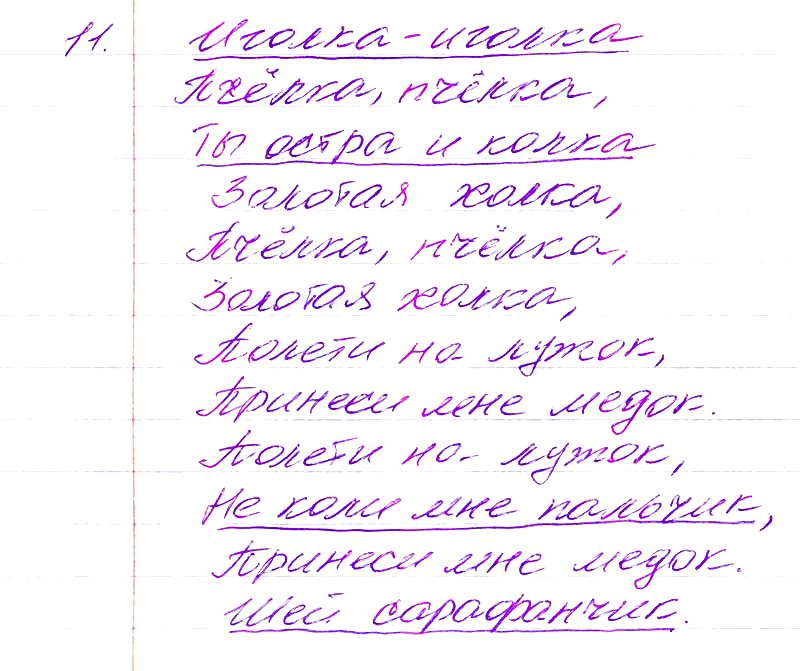 11. Иголка-иголка
Пчёлка, пчёлка,
Ты остра и колка
Золотая холка,
Пчёлка, пчёлка,
Золотая холка,
Полети на лужок,
Принеси мне медок.
Полети на лужок,
Не коли мне пальчик,
Принеси мне медок.
Шей сарафанчик.